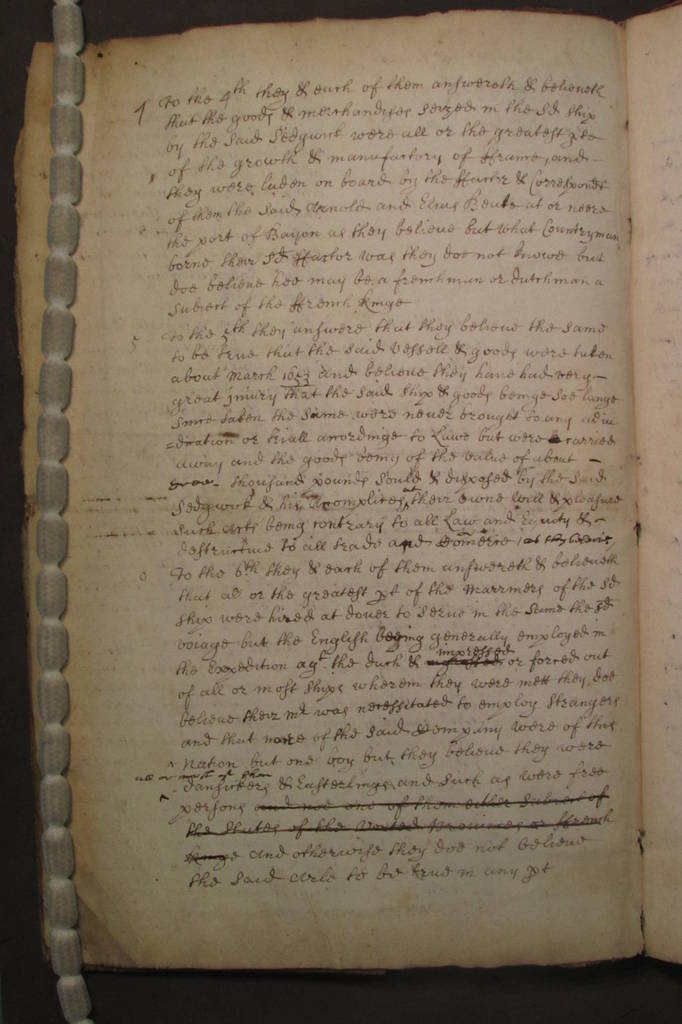 4 To the 4th they & each of them answereth & beleiveth
that the goods & merchandizes seized in the sd ship
by the said Sedgwick were all or the greatest pte
of the growth & manufactory of ffrance, and -
they were laden on board by the ffactor & Correspondt
of them the said Arnold and Elias Beake at or neere
the port of Bayon as they believe but what Countryman
borne their sd ffactor was they doe not knowe but
doe believe hee may be a frenchman or dutchman a
subiect of the ffrench kinge
5 To the 5th they answere that they believe the same
to be true that the said vessell & goods were taken
about March 1653 and believe they have had very -
great iniury that the said ship & goods beinge soe longe
since taken the same were never brought to any adiu
=dication or triall accordinge to Lawe but were carried
away and the goods being of the value of about -
thousand pounds sould & disposed by the said
Sedgwick & his Accomplices their owne will & pleasure
such Acts being contrary to all Law and Equity & -
destructive to all trade and Comerce
6 To the 6th they & each of them answereth & believeth
that all or the greatest pt of the marriners of the sd
ship were hired at dover to serve in the same the sd
voiage but the English being generally employed in
the Expedition agt the duch & impressed or forced out
of all or most ships wherein they were mett they doe
believe their mr was necessitated to employ strangers
and that none of the said Company were of this
Nation but one boy but they believe they were
all or most of them
danskers & Easterlings and such as were free
persons and not one of them either subiect of
the States of the United Provinces or ffrench
kinge and otherwise they doe not believe
the said Arle to be true in any pt